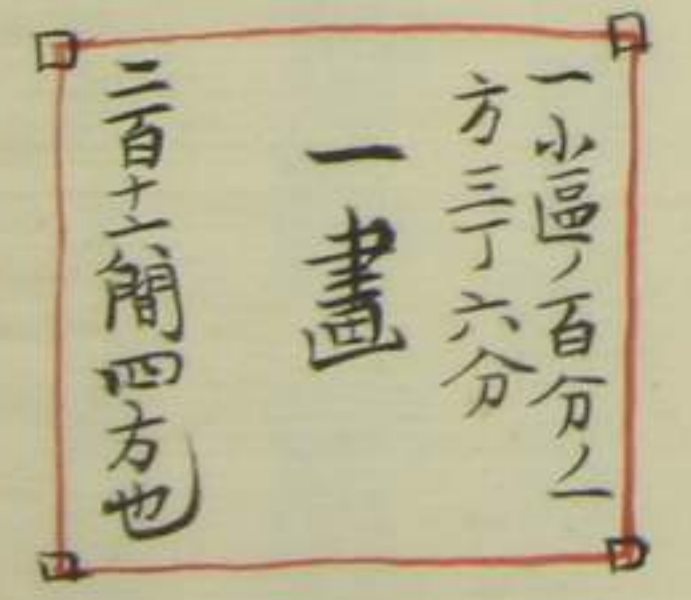 一小區ノ百分ノ一
方三丁六分
一畫
二百十六間四方也